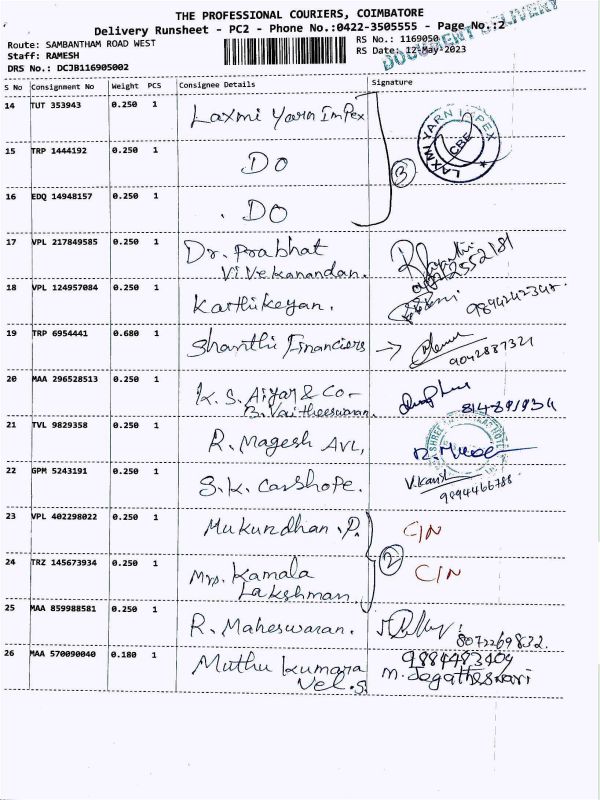 THE PROFESSIONAL COURIERS, COIMBATORE
Delivery Runsheet - PC2 - Phone No.:0422-3505555 - Page No.:2
DOCUMENT DELIVERY
Route: SAMBANTHAM ROAD WEST
RS No.: 1169050
Staff: RAMESH
RS Date: 12-May-2023
DRS No.: DCJB116905002
S No Consignment No Weight PCS Consignee Details Signature
14 TUT 353943 0.250 1 Laxmi Yarn ImPex
LAXMI YARN IMPEX CBE
15 TRP 1444192 0.250 1 DO
3
16 EDQ 14948157 0.250 1 DO
17 VPL 217849585 0.250 1 Dr. Prabhat
Vivekanandan.
18 VPL 124957084 0.250 1 Karthikeyan.
19 TRP 6954441 0.680 1 Shanthi Financiers → 9042887321
20 MAA 296528513 0.250 1 K. S. Aiyar & Co -
B. Vaitheeswaran.
21 TVL 9829358 0.250 1 R. Magesh AVL,
22 GPM 5243191 0.250 1 S.K. Carshope. 9894466788
23 VPL 402298022 0.250 1 Mukundhan .P. C/N
2
24 TRZ 145673934 0.250 1 Mrs. Kamala C/N
Lakshman
25 MAA 859988581 0.250 1 R. Maheswaran. 8072269832.
26 MAA 570090040 0.180 1 Muthu Kumara 9884483404
Vel.S. m. Jagatheswari